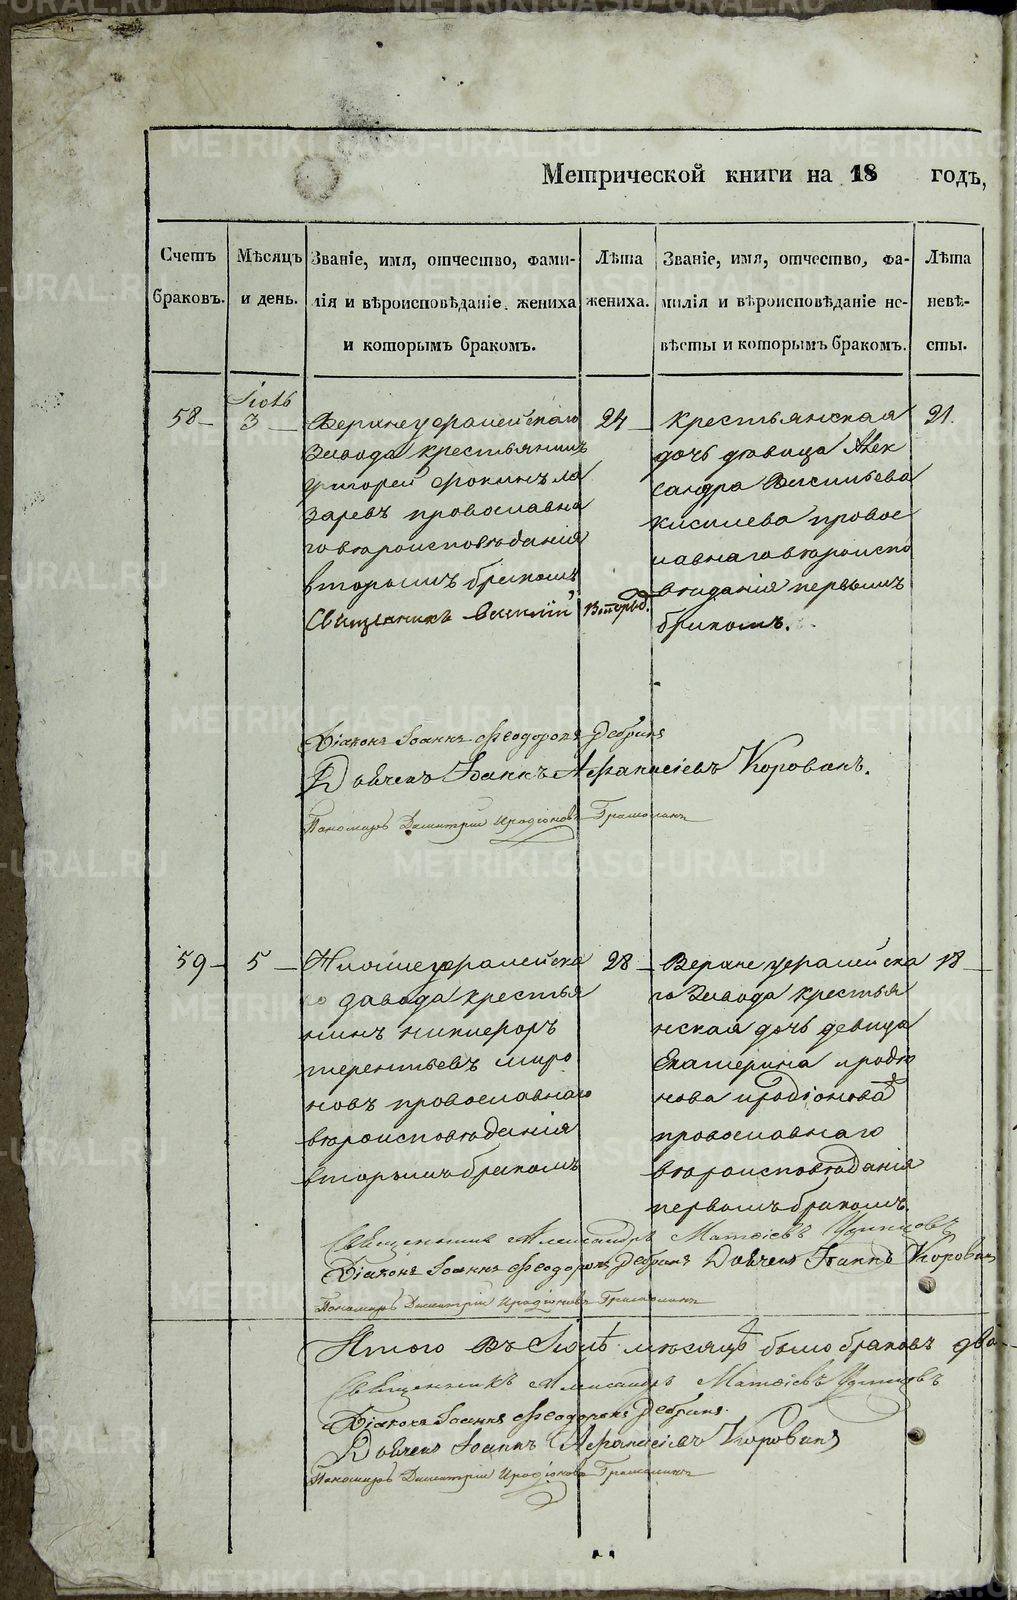 Метрической книги на 18 годъ,
Счетъ браковъ.
Мѣсяцъ и день.
Званіе, имя, отчество, фами-
лія и вѣроисповѣданіе жениха
и которымъ бракомъ.
Лѣта
жениха.
Званіе, имя, отчество, фа-
милія и вѣроисповѣданіе не-
вѣсты и которымъ бракомъ.
Лѣта
невѣ-
сты.
58
3
Верхнеуфалейскаго
завода крестьянинъ
григорей фокинъ ла
заревъ провославна
го вѣроисповѣданія
вторымъ бракомъ
Священникъ Василій
24
крестьянская
дочь девица Алек
сандра Васильева
киселева провос
лавнаго вѣроиспо
вѣданія первымъ
бракомъ.
21.
Діаконъ Іоаннъ Феодоровъ
Дьячекъ Іоаннъ Афанасіевъ Корованъ.
Пономарь Димитрій Иродіоновъ
59
5
Нижнеуфалейска
го завода крестья
нинъ никифоръ
терентьевъ миро
новъ провославнаго
вѣроисповѣданія
вторымъ бракомъ
28
Верхнеуфалейска
го завода крестья
нская дочь девица
Екатерина иродіо
нова иродіонова
провославнаго
вѣроисповѣданія
первымъ бракомъ.
18
Священникъ Александръ Матѳіевъ Удинцовъ
Діаконъ Іоаннъ Феодоровъ Дьячекъ Іоаннъ Корованъ
Пономарь Димитрій Иродіоновъ
Итого въ Іюлѣ мѣсяцѣ было браковъ два
Священникъ Александръ Матѳіевъ Удинцовъ
Діаконъ Іоаннъ Феодоровъ
Дьячекъ Іоаннъ Афанасіевъ Корованъ
Пономарь Димитрій Иродіоновъ
METRIKI.GASO-URAL.RU